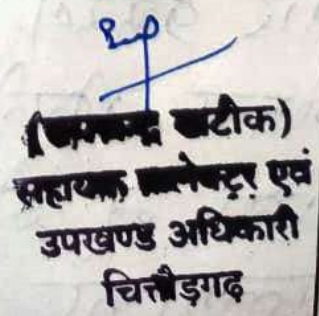 खटीक)
सहायक कलेक्टर एवं
उपखण्ड अधिकारी
चित्तौड़गढ